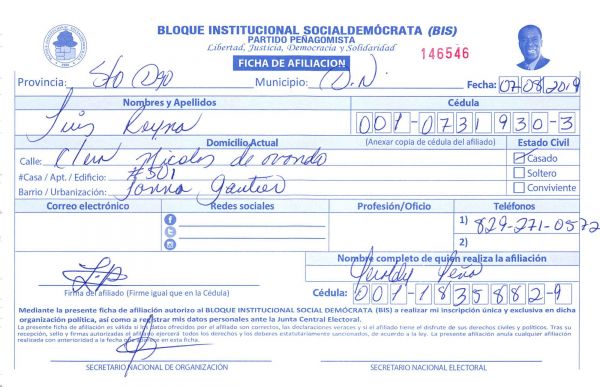 BLOQUE INSTITUCIONAL SOCIALDEMÓCRATA (BIS)
PARTIDO PEÑAGOMISTA
Libertad, Justicia, Democracia y Solidaridad
146546
FICHA DE AFILIACION
Provincia: Sto Dgo Municipio: D.N. Fecha: 07/08/2019
Nombres y Apellidos Cédula
Luis Reyna 001-0731930-3
Domicilio Actual (Anexar copia de cédula del afiliado) Estado Civil
Calle: C/era Nicolas de ovando Casado
#Casa / Apt. / Edificio: #501 Soltero
Barrio / Urbanización: Gautier Conviviente
Correo electrónico Redes sociales Profesión/Oficio Teléfonos
1) 829-271-0572
2)
Nombre completo de quién realiza la afiliación
Peña
Firma del afiliado (Firme igual que en la Cédula)
Cédula: 001-1835882-9
Mediante la presente ficha de afiliación autorizo al BLOQUE INSTITUCIONAL SOCIAL DEMÓCRATA (BIS) a realizar mi inscripción única y exclusiva en dicha
organización política, así como a registrar mis datos personales ante la Junta Central Electoral.
La presente ficha de afiliación es válida si los datos ofrecidos por el afiliado son correctos, las declaraciones veraces y si el afiliado tiene el disfrute de sus derechos civiles y políticos. Tras su
recepción, sello y firmas autorizadas el afiliado ejercerá todos los derechos y los deberes estatutariamente sancionados, de acuerdo a la ley. La presente afiliación anula cualquier afiliación
realizada con anterioridad a la fecha que aparece en esta ficha.
SECRETARIO NACIONAL DE ORGANIZACIÓN SECRETARIO NACIONAL ELECTORAL